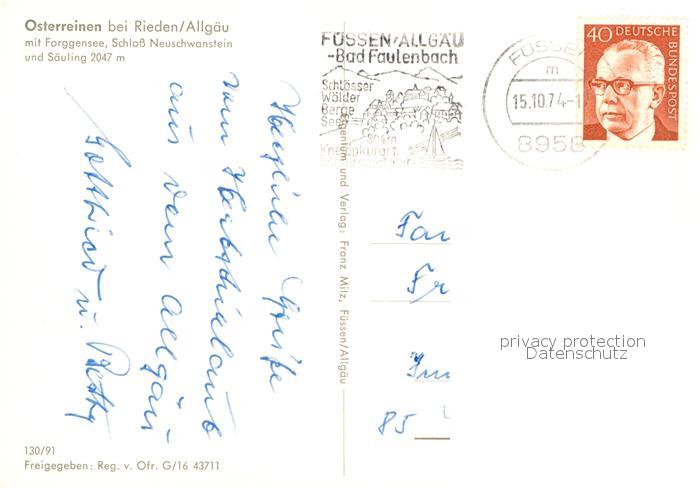 Osterreinen bei Rieden/Allgäu
mit Forggensee, Schloß Neuschwanstein
und Säuling 2047 m
Herzliche Grüße
vom Herbsturlaub
aus dem Allgäu
Gottfried u. Betty
130/91
Freigegeben: Reg. v. Ofr. G/16 43711
Eigentum und Verlag: Franz Milz, Füssen/Allgäu
FÜSSEN/ALLGÄU
-Bad Faulenbach
Schlösser
Wälder
Berge
Seen
Kneippkurort
FÜSSEN
m
15.10.74-1
8958
40 DEUTSCHE
BUNDESPOST
Fam
Fr
85
privacy protection
Datenschutz